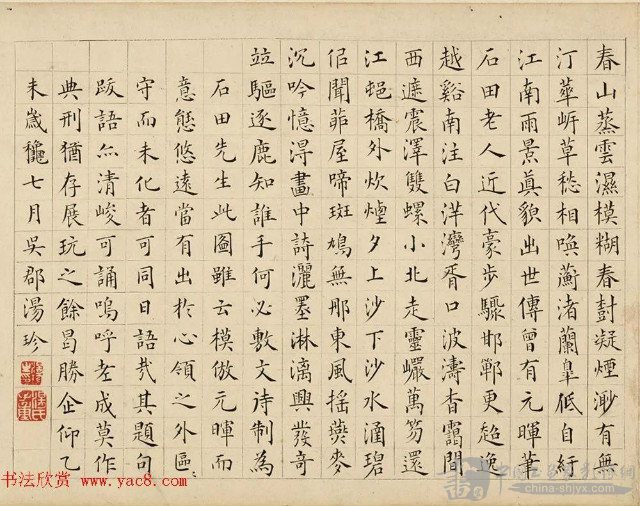 春山蒸雲濕模糊春封凝煙渺有無
汀華岸草愁相喚蘅渚蘭皐低自紆
江南雨景眞貌出世傳曾有元暉筆
石田老人近代豪步驟邯鄲更超逸
越谿南注白洋灣胥口波濤杳靄間
西遮震澤雙螺小北走靈巖萬笏還
江邨橋外炊煙夕上沙下沙水涵碧
佀聞茆屋啼斑鳩無那東風摇䕽麥
沉吟憶淂畫中詩灑墨淋漓興發竒
竝驅逐鹿知誰手何必敷文诗制為
石田先生此圖雖云模倣元暉而
意態悠遠當有出於心領之外區
守而未化者可同日語㢤其題句
跋語亦清峻可誦嗚呼老成莫作
典刑猶存展玩之餘曷勝企仰乙
未歲龝七月吳郡湯珍
书法欣赏 www.yac8.com
china-shjyx.com